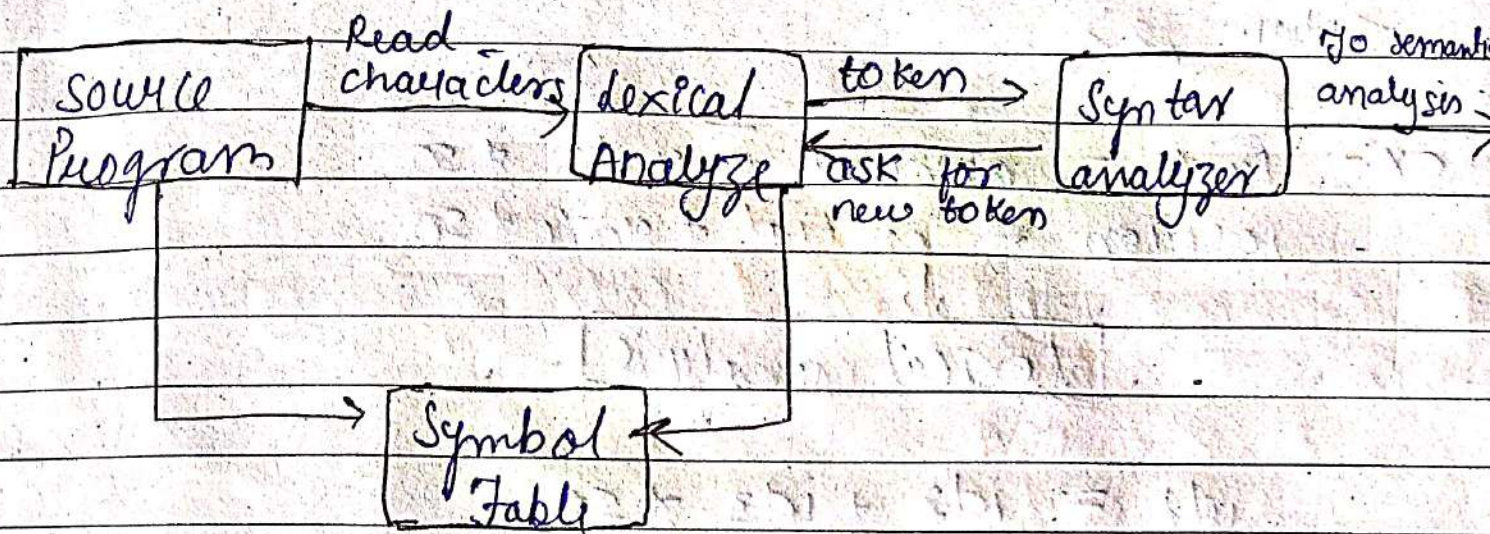 Source
Program
Read
characters
Lexical
Analyze
token
ask for
new token
Syntax
analyzer
To semantic
analysis
Symbol
Table